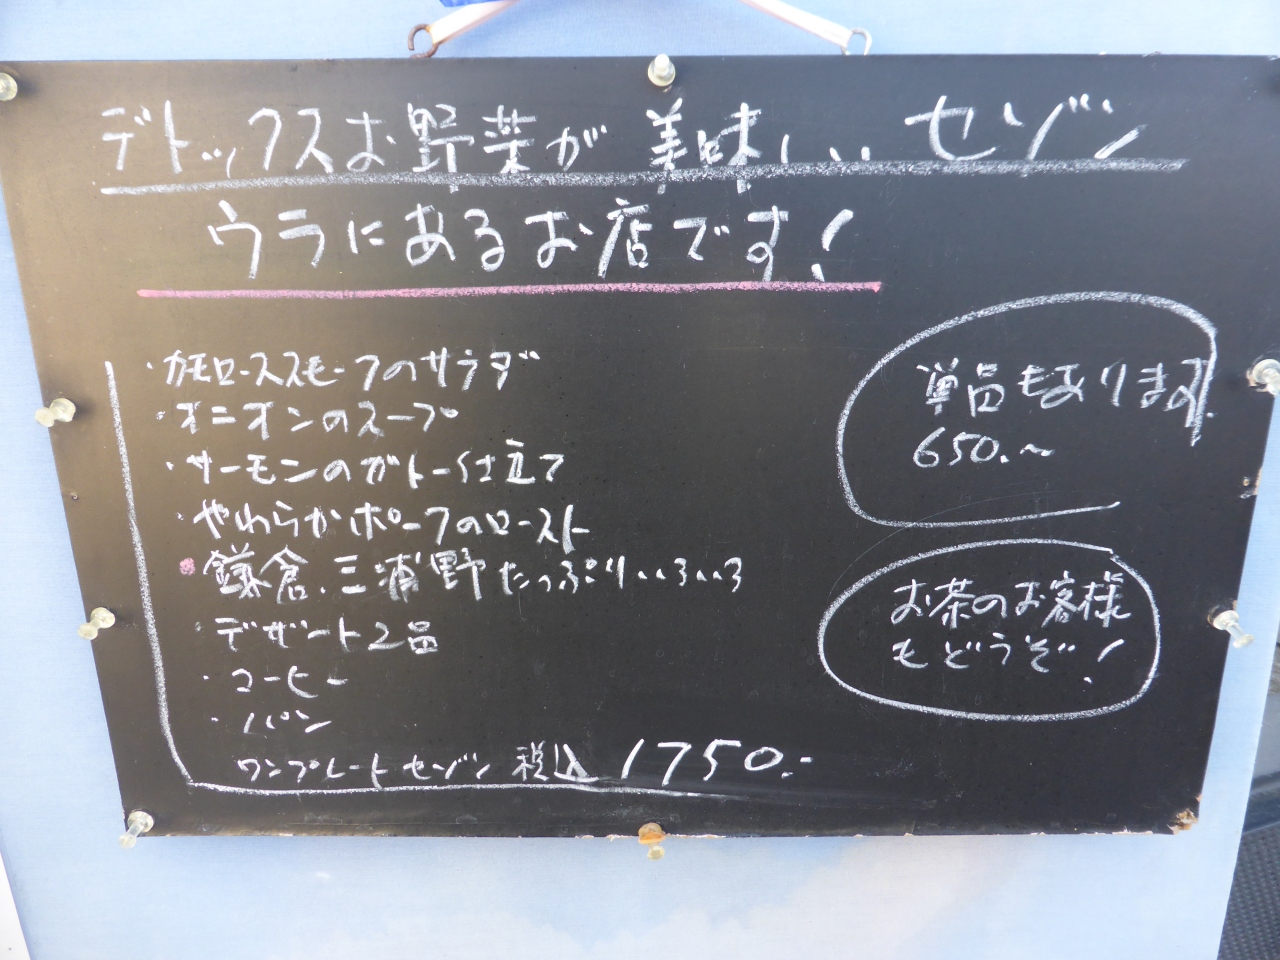 デトックスお野菜が美味しい セゾン
ウラにあるお店です!
・カモローススモークのサラダ
・オニオンのスープ
・サーモンのガトー仕立て
・やわらかポークのロースト
・鎌倉、三浦野菜たっぷりいろいろ
・デザート2品
・コーヒー
・パン
ワンプレートセゾン 税込 1750.-
単品もあります
650.~
お茶のお客様
もどうぞ!